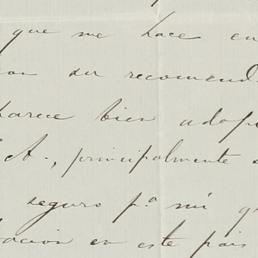 que me hace en
su recomend
parece bien adop
principalmente
seguro p.a mi q
en este pais